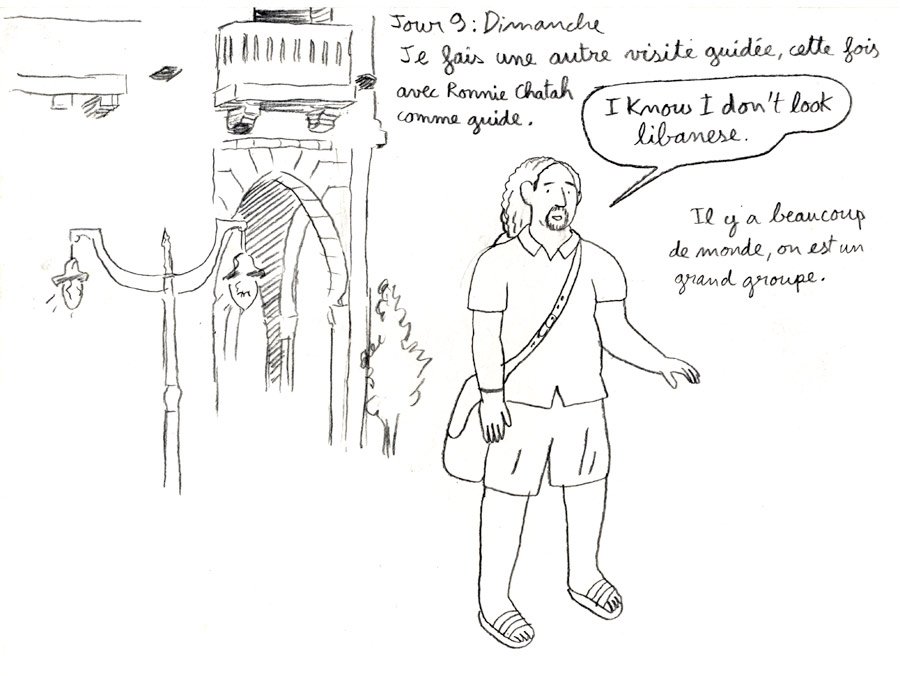 Jour 9: Dimanche
Je fais une autre visite guidée, cette fois
avec Ronnie Chatah
comme guide.
I Know I don't look
libanese.
Il y a beaucoup
de monde, on est un
grand groupe.